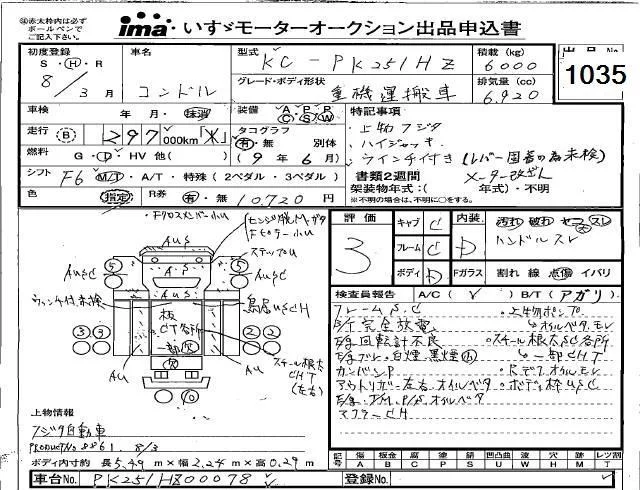 ※赤太枠内は必ずボールペンでご記入下さい。
ima いすゞモーターオークション出品申込書
初度登録 車名 型式 KC-PK251HZ 積載 (kg) 6000 出品No.
S・H・R 8/3月 コンドル グレード・ボディ形状 重機運搬車 排気量 (cc) 6,920 1035
車検 年・月・抹消 装備 A/C P/S P/W 特記事項
走行 B 297,000km「*」 タコグラフ 有・無 別体 ・上物フジタ
燃料 G・D・HV 他( ) (9年6月) ・ハイジャッキ
・ウインチ付き(レバー固着の為未検)
シフト F6 M/T・A/T・特殊(2ペダル・3ペダル) 書類2週間 メーター改ざん
色 指定 R券 有・無 10,720円 架装物年式:( 年式)・不明
※不明の場合は、不明に○をする。
評価 3
キャブ C 内装 D 汚れ 破れ コゲ スレ
フレーム C ハンドルスレ
ボディ D Fガラス 割れ 線 点傷 イバリ
・Fクロスメンバー小U
ステップU
AUS
AUSC AUSC
ウィンチ付未検
板CT各所
一部欠
鳥居USCH
AU AU
スチール根太CHT(左右)
検査員報告 A/C(V) B/T(アガリ)
フレームS,C ・上物ポンプ
B/T完全放電 オイルベタ、モレ
E/g回転計不良 ・スチール根太SC各所
E/gブレ・白煙・黒煙小 一部CHT
カーボンP ・Rデフオイルモレ
アウトリガー左右オイルベタ ・ボディ枠USC
マフラーCH
上物情報
フジタ自動車
PRODUCT No 8861. 8/3
ボディ内寸約 長5.49m×幅2.24m×高0.29m
記号 傷 A 板金 B 腐食 C 塗装 P 錆 S 凹凸曲 U 波 W 穴 H 跡 M レツ割 T
車台No. PK251HZ00078 登録No.